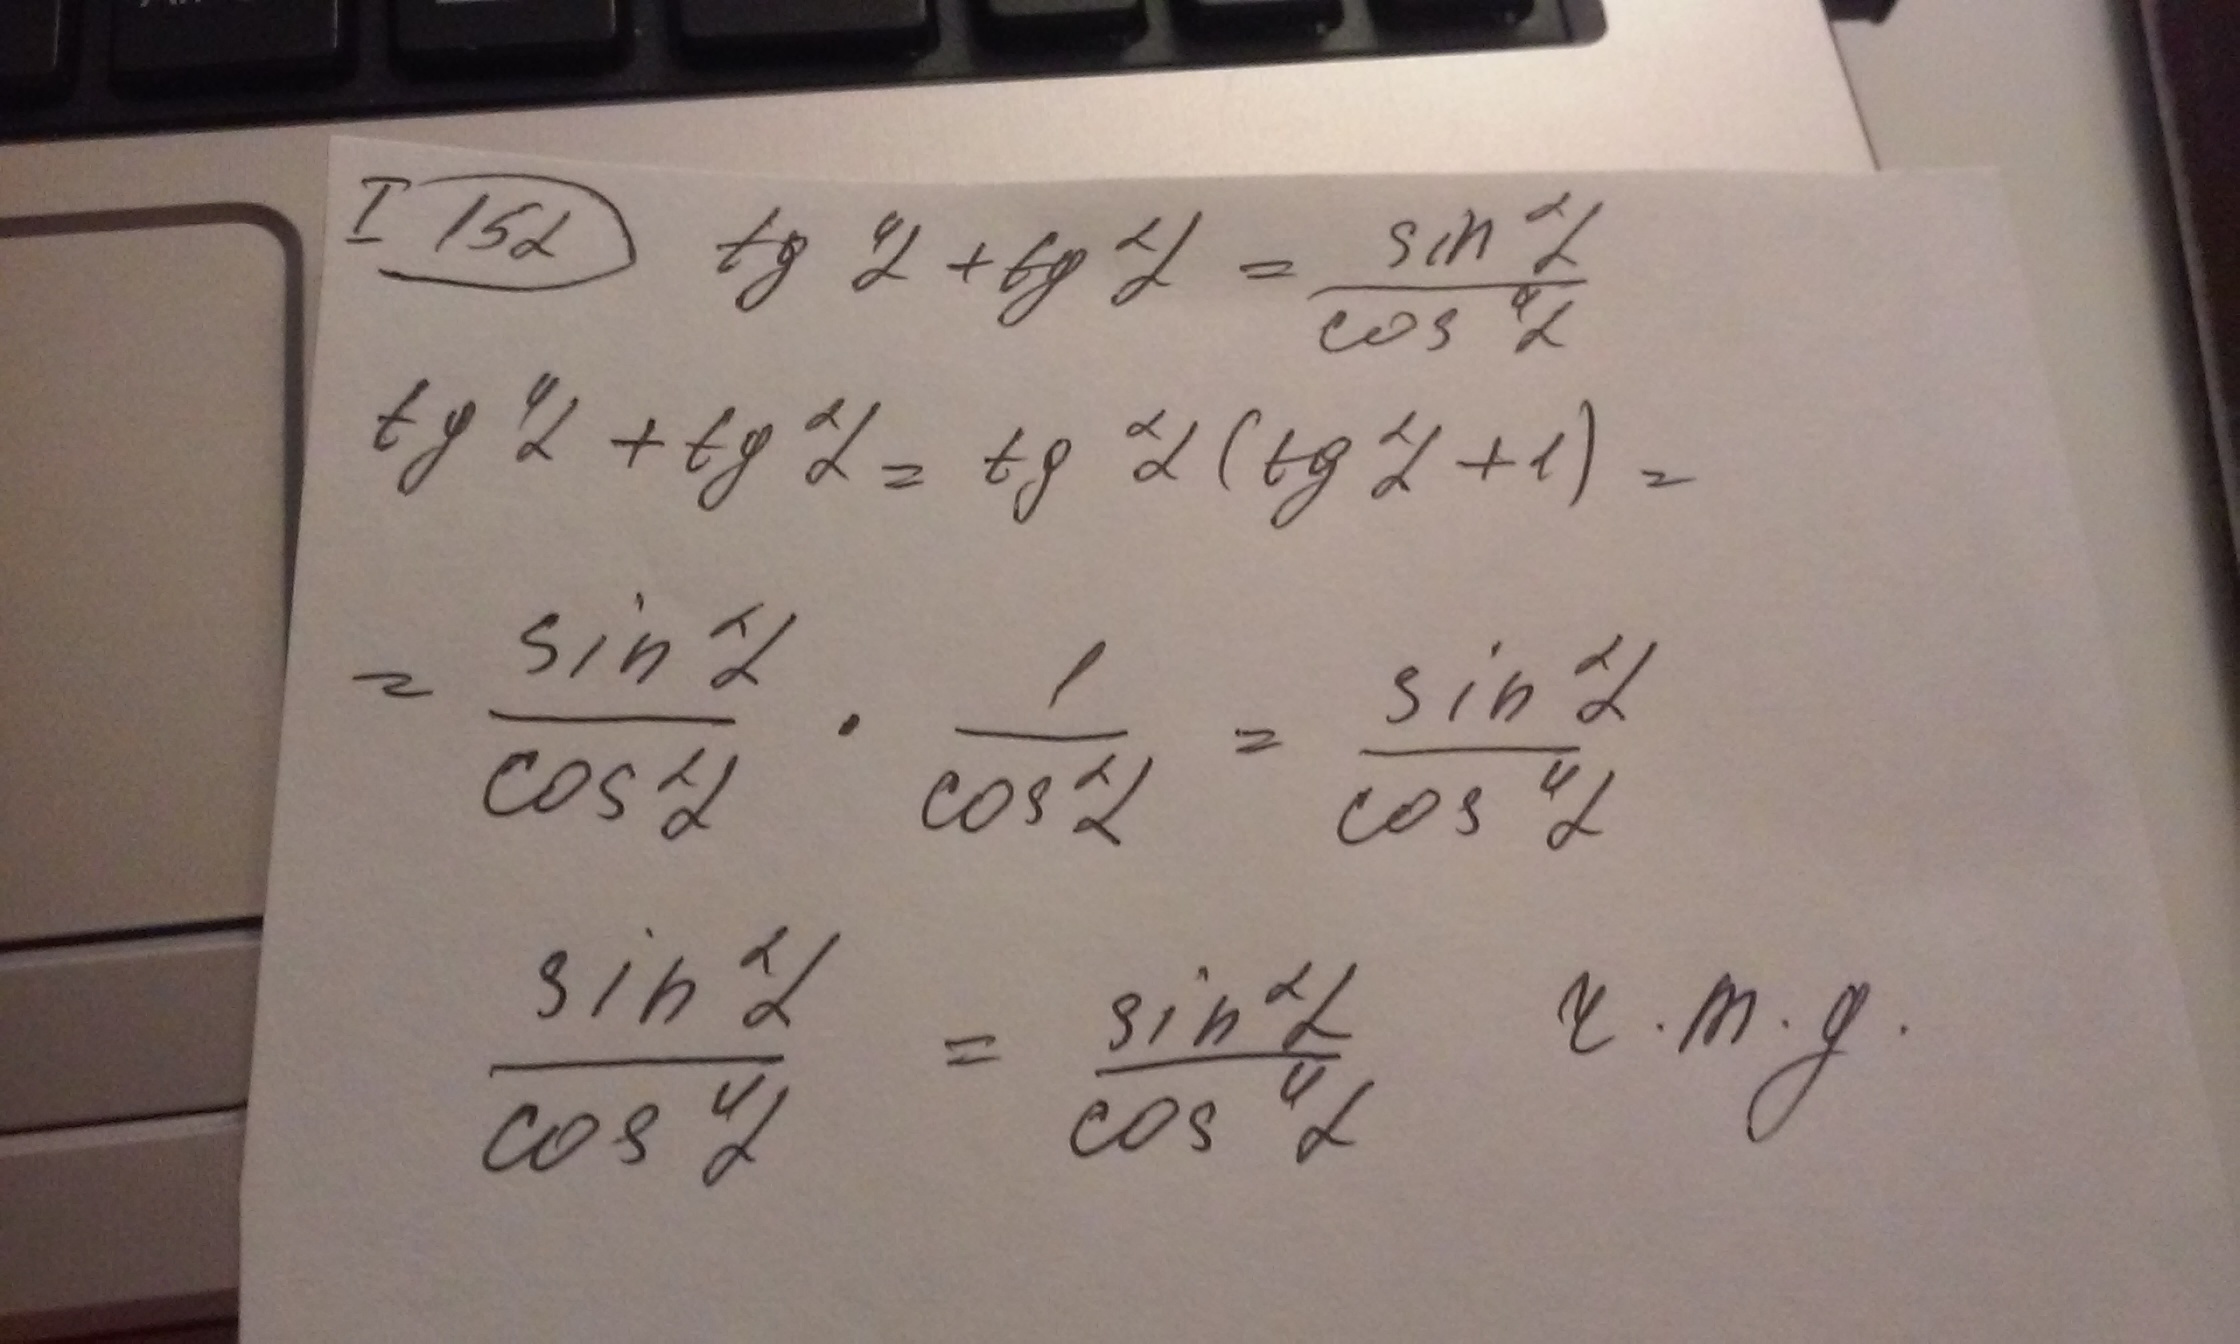 I 152 tg⁴α + tg²α = sin²α / cos⁴α
tg⁴α + tg²α = tg²α (tg²α + 1) =
= sin²α / cos²α · 1 / cos²α = sin²α / cos⁴α
sin²α / cos⁴α = sin²α / cos⁴α ч.т.д.